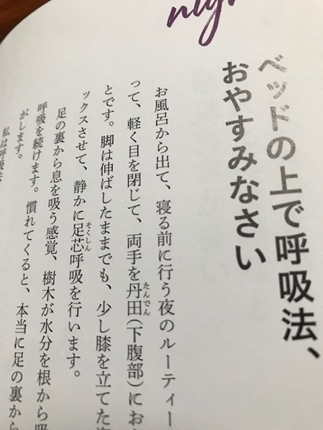 nig
ベッドの上で呼吸法、
おやすみなさい
お風呂から出て、寝る前に行う夜のルーティー
って、軽く目を閉じて、両手を丹田(下腹部)にお
とです。脚は伸ばしたままでも、少し膝を立てた
ックスさせて、静かに足芯呼吸を行います。
足の裏から息を吸う感覚、樹木が水分を根から吸
呼吸を続けます。慣れてくると、本当に足の裏から
がします。
私は呼吸法